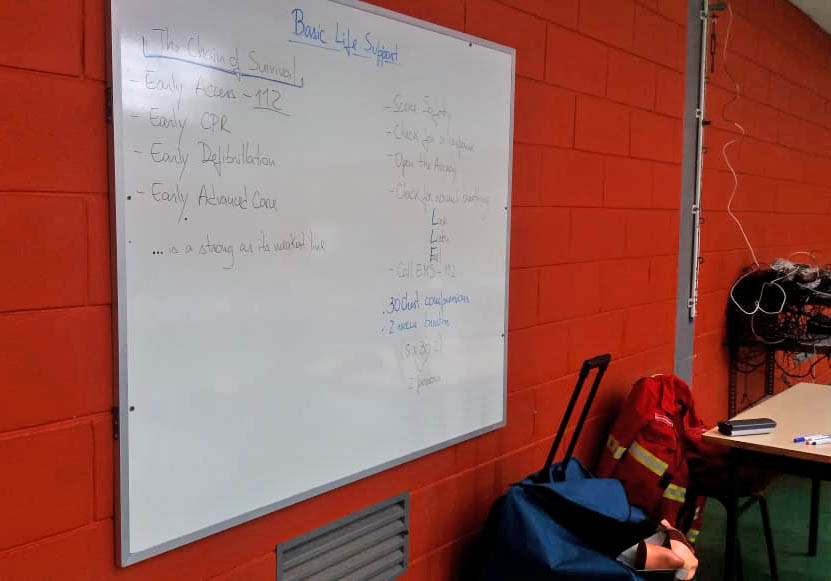 Basic Life Support
The Chain of Survival
- Early Access - 112
- Early CPR
- Early Defibrillation
- Early Advanced Care
... is a strong as its weakest link
- Scene Safety
- Check for a response
- Open the Airway
- Check for normal breathing
Look
Listen
Feel
- Call EMS - 112
. 30 chest compressions
. 2 rescue breaths
(5 x 30:2)
2